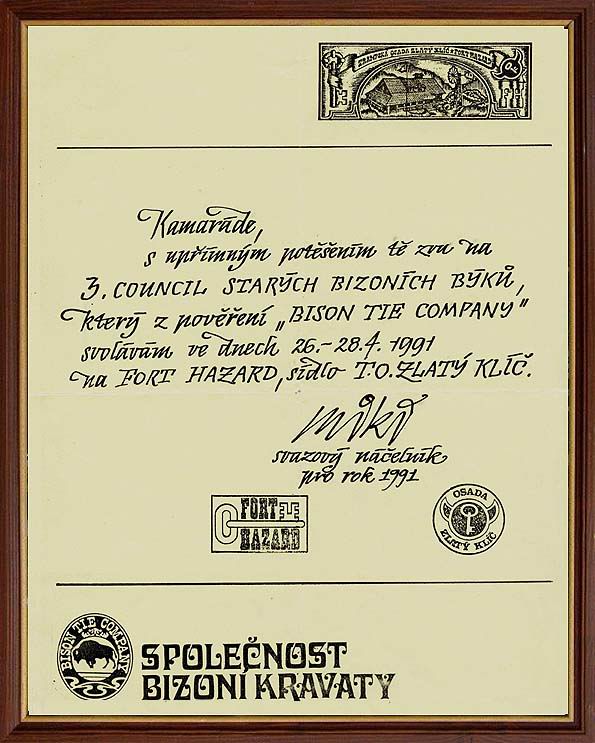 TRAMPSKÁ OSADA ZLATÝ KLÍČ FORT HAZARD
Kamaráde,
s upřímným potěšením tě zvu na
3. COUNCIL STARÝCH BIZONÍCH BÝKŮ,
který z pověření „BISON TIE COMPANY"
svolávám ve dnech 26.-28.4. 1991
na FORT HAZARD, sídlo T.O. ZLATÝ KLÍČ.
miki
svazový náčelník
pro rok 1991
FORT
HAZARD
OSADA
ZLATÝ KLÍČ
BISON TIE COMPANY
SPOLEČNOST
BIZONÍ KRAVATY